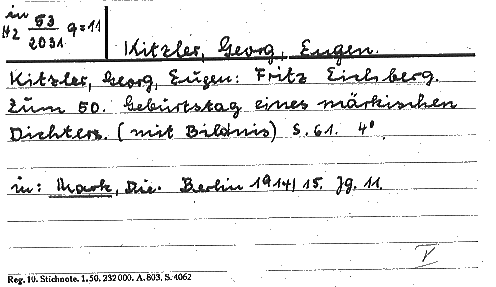 in
Hz 53 q=11
2031
Kitzler, Georg, Eugen.
Kitzler, Georg, Eugen: Fritz Eichberg.
Zum 50. Geburtstag eines märkischen
Dichters. (mit Bildnis) S. 61. 4°
in: Mark, Die. Berlin 1914/15. Jg. 11.
V
Reg. 10. Stichnote. 1. 50. 232000. A. 803. S. 4062